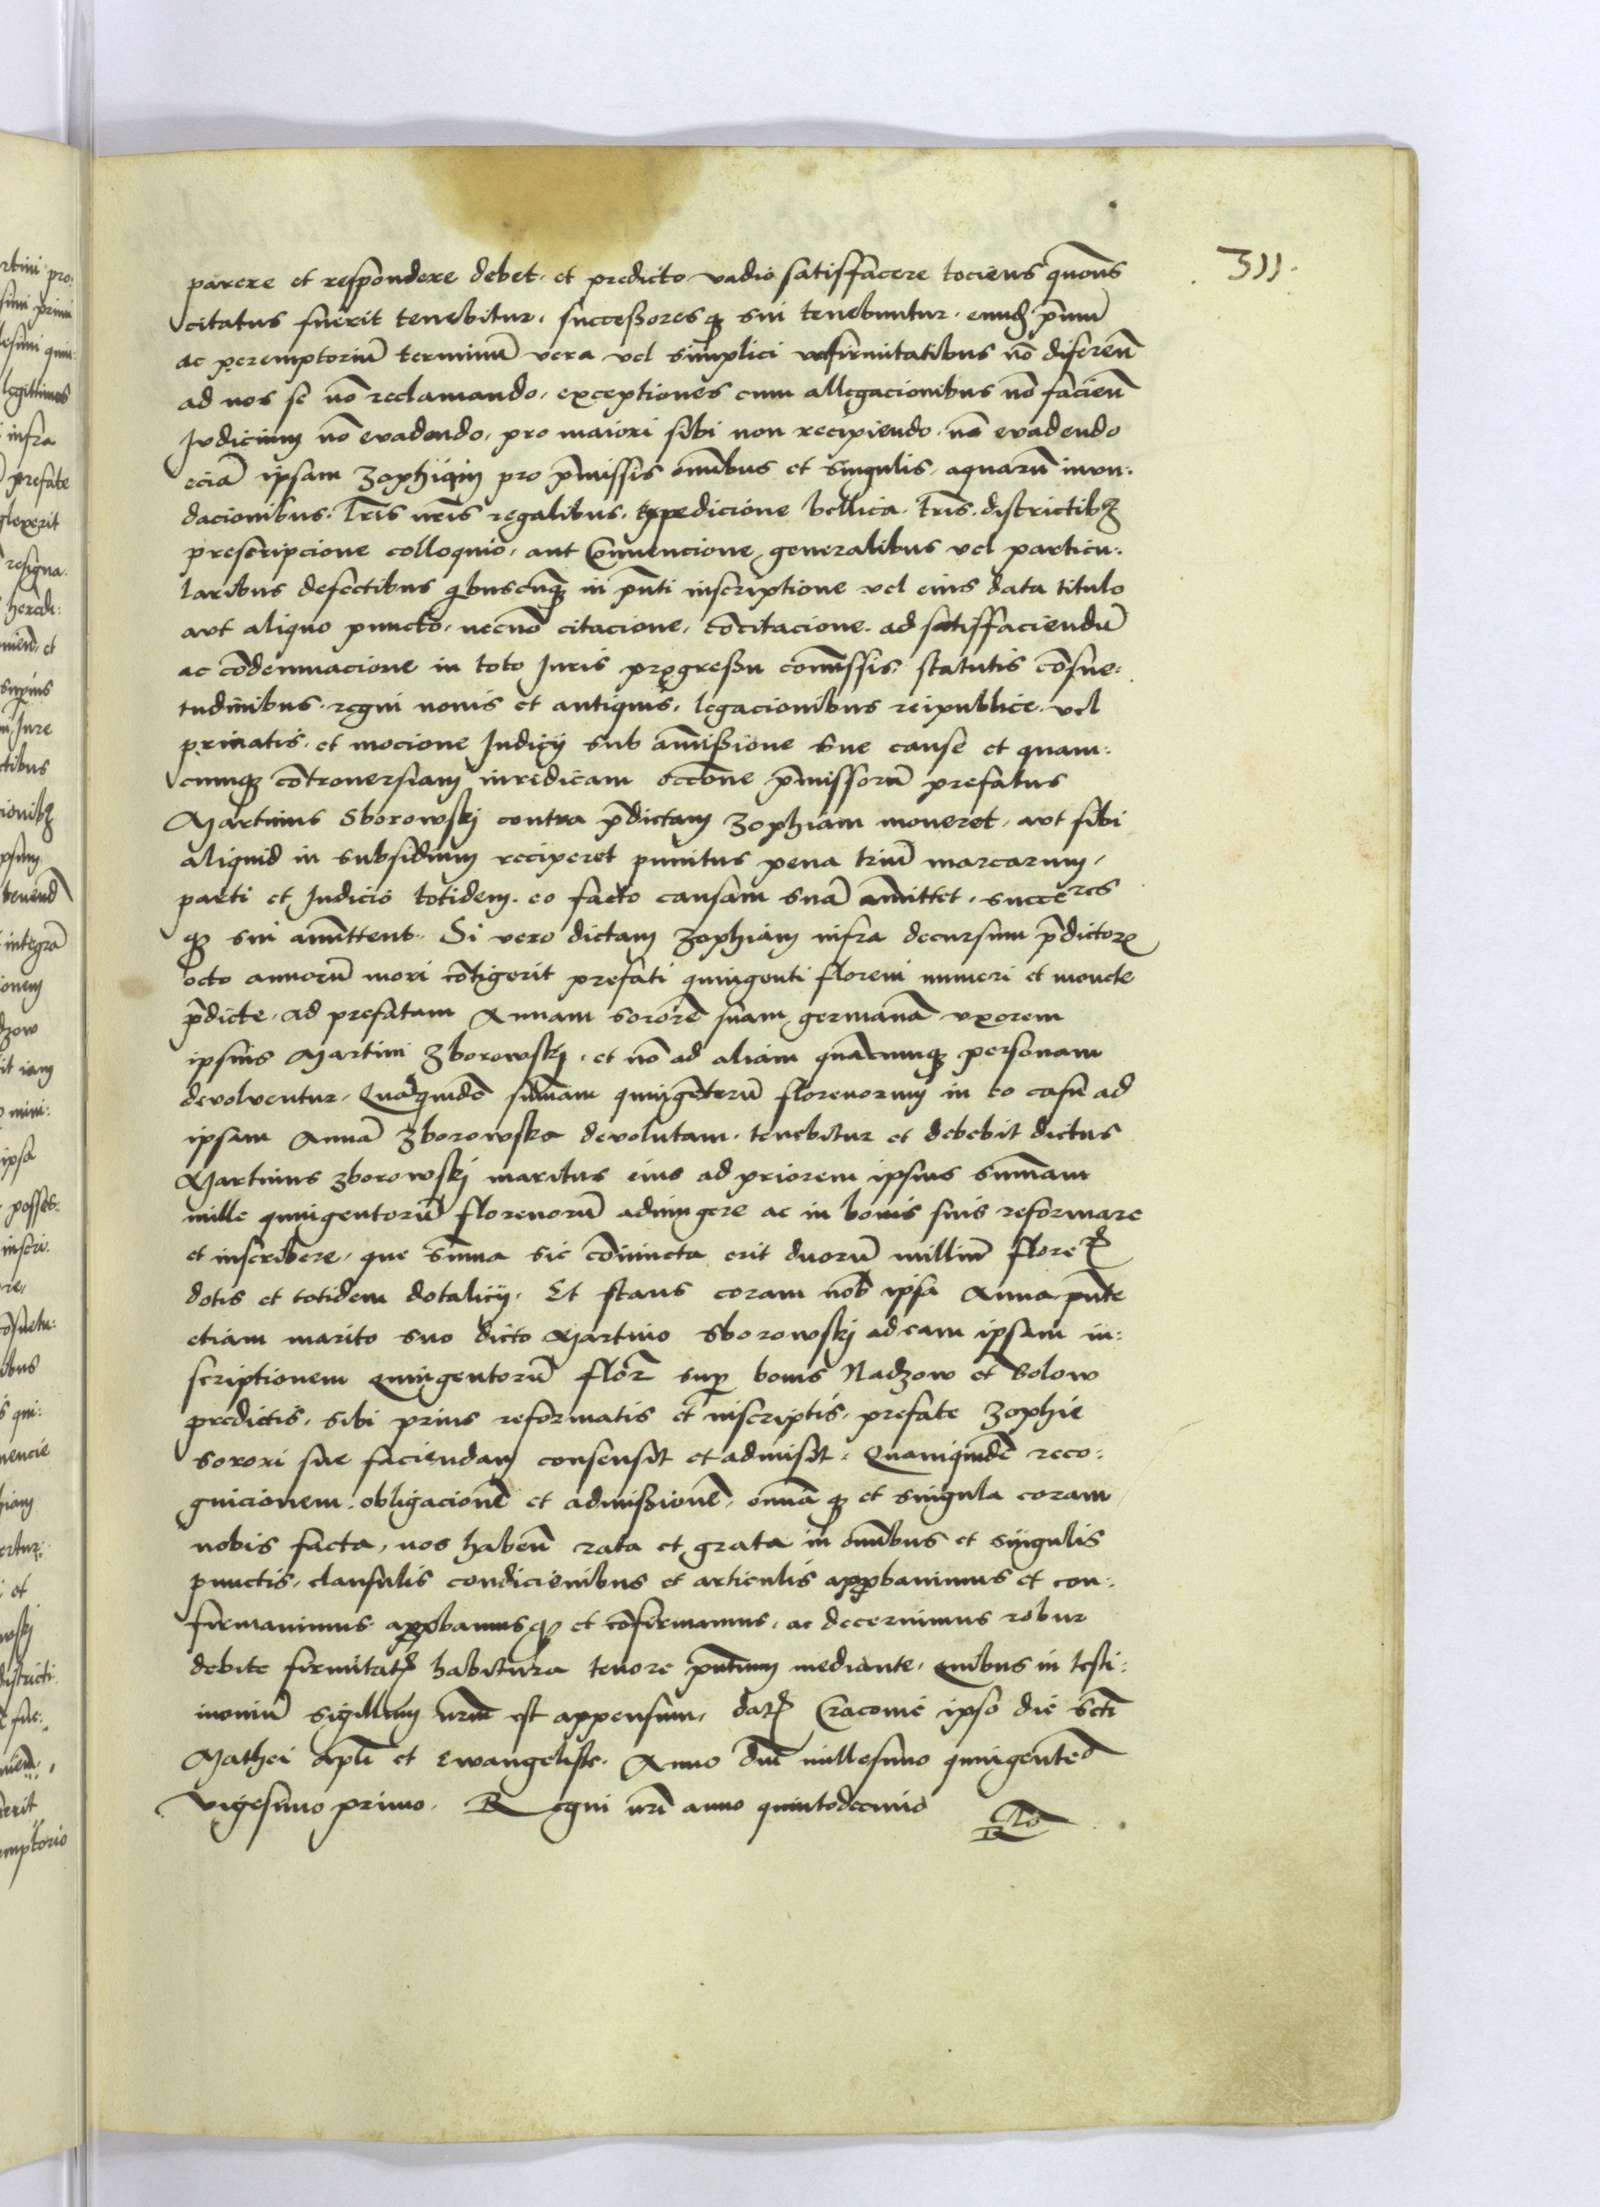 311.
parere et respondere debet. et predicto vadio satisfacere tociens quotiens
citatus fuerit tenebitur, successores q3 sui tenebuntur. primū
ac peremptoriū terminū vera vel simplici infirmitatibus nō diferen̄
ad nos se nō reclamando, exceptiones cum allegacionibus nō facien̄
Iudicium nō evadendo, pro maiori sibi non recipiendo. nō evadendo
eciā ipsam Zophiam pro p̄missis omībus et singulis, aquarū inun:
dacionibus. lr̄is nr̄is regalibus. expedicione bellica. tr̄is. districtib3
prescripcione colloquio, aut Convencione, generalibus vel particu:
laribus defectibus q̇buscūq3 in pn̄ti inscriptione vel eius data titulo
aut aliquo puncto, necnō citacione, cōcitacione. ad satisfaciendū
ac cōdemnacione in toto Iuris progressu comissis, statutis cōsue:
tudinibus. regni novis et antiquis, legacionibus reipublice. vel
privatis. et mocione Iudicij sub amissione sue cause et quam:
cumq3 cōtroversiam iuridicam occōne p̄missorū prefatus
Martinus Sborowskj contra p̄dictam Zophiam moveret, aut sibi
aliquid in subsidium reciperet punitus pena triū marcarum,
parti et Iudicio totidem. eo facto causam suā amittet, succeres
q3 sui amittent. Si vero dictam Zophiam infra decursum p̄dictor
octo annorū mori cōtigerit prefati quingenti floreni numeri et monete
p̄dicte, ad prefatam Annam sororē suam germanā uxorem
ipsius Martini Zborowskj, et nō ad aliam quācumq3 personam
devolventur, Quāquidē summam quingētorū florenorum in eo casu ad
ipsam Annā Zborowska devolutam. tenebitur et debebit dictus
Martinus Zborowskj maritus eius ad priorem ipsius summam
mille quingentorū florenorū adiungere ac in bonis suis reformare
et inscribere, que suma sic cōiuncta erit duorū milliū flore
dotis et totidem dotalicij. Et stans coram nob ipsa Anna pn̄te
etiam marito suo dicto Martino Sborowskj ad eam ipsam in:
scriptionem Quingentorū flor sup bonis Nadzow et Solow
predictis, sibi prius reformatis et inscriptis, prefate Zophie
sorori sue faciendam consensit et admisit. Quamquidē reco:
gnicionem. obligacionē et admissionē, omīa q3 et singula coram
nobis facta, nos haben̄ rata et grata in omībus et singulis
punctis, clausulis condicionibus et articulis approbavimus et con:
firmavimus approbamus q3 et cōfirmamus, ac decernimus robur
debite firmitat habitura tenore pn̄tium mediante, Quibus in testi:
moniū sigillum nr̄m est appensum, dat Cracovie ipso die scti
Mathei apli et Ewangeliste. Anno dni millesimo quingentēo
vigesimo primo. Regni nr̄i anno quintodecimo